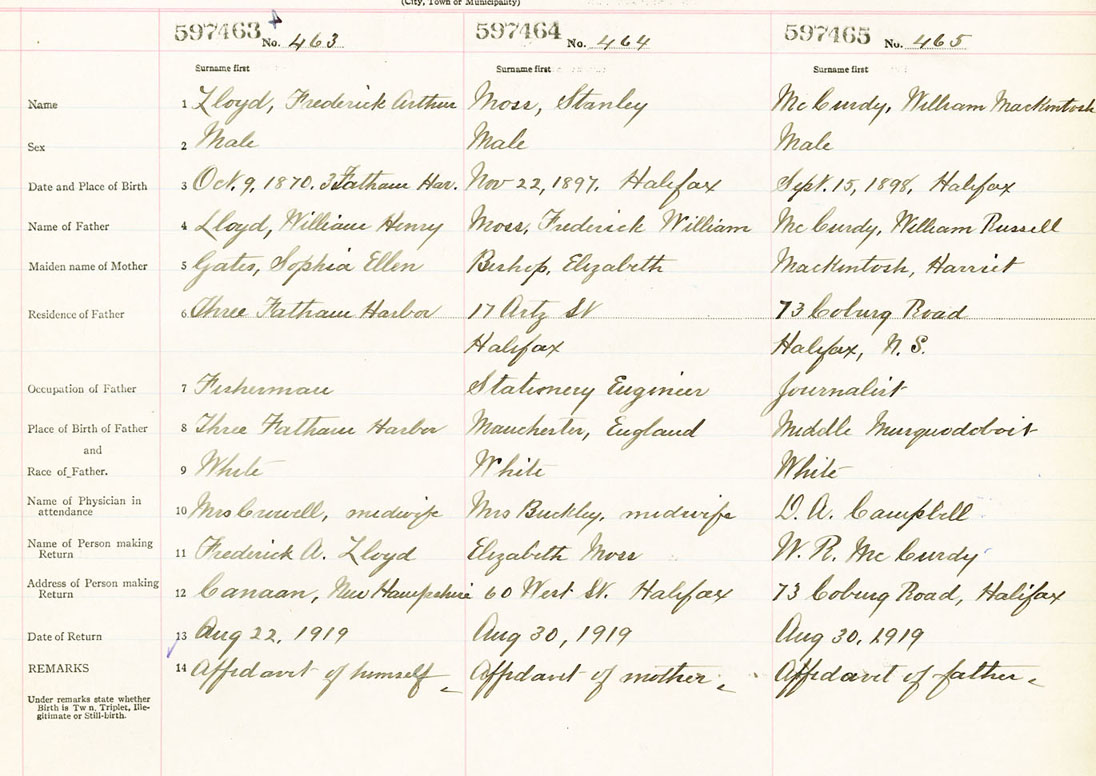 (City, Town or Municipality)
597463 No. 463 597464 No. 464 597465 No. 465
Surname first Surname first Surname first
Name 1 Lloyd, Frederick Arthur Moss, Stanley McCurdy, William Mackintosh
Sex 2 Male Male Male
Date and Place of Birth 3 Oct. 9, 1870. 3 Fatham Har. Nov 22, 1897. Halifax Sept. 15, 1898, Halifax
Name of Father 4 Lloyd, William Henry Moss, Frederick William McCurdy, William Russell
Maiden name of Mother 5 Gates, Sophia Ellen Bishop, Elizabeth Mackintosh, Harriet
Residence of Father 6 Three Fatham Harbor 17 Artz St 73 Coburg Road
Halifax Halifax, N. S.
Occupation of Father 7 Fisherman Stationery Engineer Journalist
Place of Birth of Father 8 Three Fatham Harbor Manchester, England Middle Murquodoboit
and
Race of Father. 9 White White White
Name of Physician in
attendance 10 Mrs Crowell, midwife Mrs Buckley, midwife D. A. Campbell
Name of Person making
Return 11 Frederick A. Lloyd Elizabeth Moss W. R. McCurdy
Address of Person making
Return 12 Canaan, New Hampshire 60 West St. Halifax 73 Coburg Road, Halifax
Date of Return 13 Aug 22, 1919 Aug 30, 1919 Aug 30, 1919
REMARKS 14 Affidavit of himself Affidavit of mother Affidavit of father
Under remarks state whether
Birth is Tw n, Triplet, Ille-
gitimate or Still-birth.